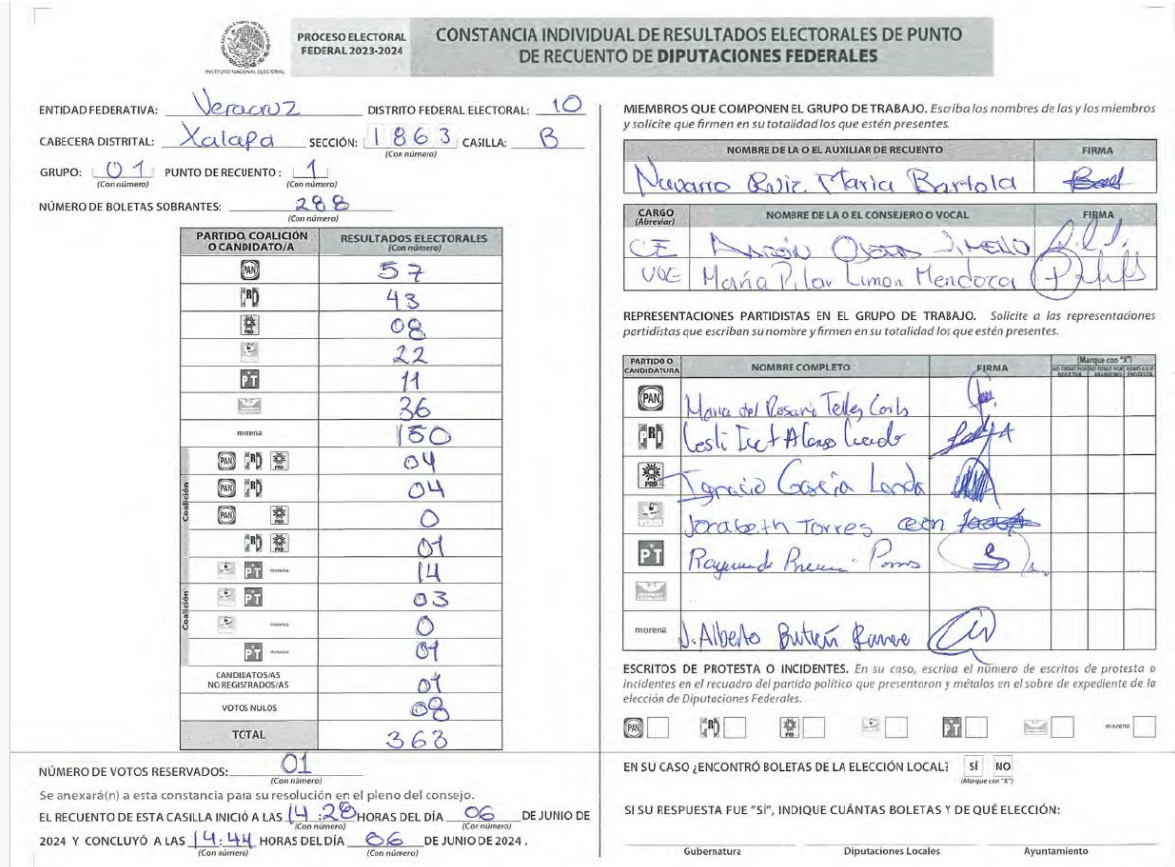 PROCESO ELECTORAL
FEDERAL 2023-2024
INSTITUTO NACIONAL ELECTORAL
CONSTANCIA INDIVIDUAL DE RESULTADOS ELECTORALES DE PUNTO
DE RECUENTO DE DIPUTACIONES FEDERALES
ENTIDAD FEDERATIVA: Veracruz DISTRITO FEDERAL ELECTORAL: 10
CABECERA DISTRITAL: Xalapa SECCIÓN: 1863 CASILLA: B
(Con número)
GRUPO: 01 PUNTO DE RECUENTO: 1
(Con número) (Con número)
NÚMERO DE BOLETAS SOBRANTES: 288
(Con número)
PARTIDO, COALICIÓN O CANDIDATO/A RESULTADOS ELECTORALES
(Con número)
PAN 57
PRI 43
PRD 08
22
PT 11
36
morena 150
Coalición
PAN PRI PRD 04
PAN PRI 04
PAN PRD 0
PRI PRD 01
PT morena 14
Coalición
PT 03
morena 0
PT morena 01
CANDIDATOS/AS
NO REGISTRADOS/AS 01
VOTOS NULOS 08
TOTAL 363
NÚMERO DE VOTOS RESERVADOS: 01
(Con número)
Se anexará(n) a esta constancia para su resolución en el pleno del consejo.
EL RECUENTO DE ESTA CASILLA INICIÓ A LAS 14:28 HORAS DEL DÍA 06 DE JUNIO DE
(Con número) (Con número)
2024 Y CONCLUYÓ A LAS 14:44 HORAS DEL DÍA 06 DE JUNIO DE 2024.
(Con número) (Con número)
MIEMBROS QUE COMPONEN EL GRUPO DE TRABAJO. Escriba los nombres de las y los miembros
y solicite que firmen en su totalidad los que estén presentes.
NOMBRE DE LA O EL AUXILIAR DE RECUENTO FIRMA
Navarro Ruiz Maria Bartola
CARGO
(Abreviar) NOMBRE DE LA O EL CONSEJERO O VOCAL FIRMA
CE
María Pilar Limon Mendoza
REPRESENTACIONES PARTIDISTAS EN EL GRUPO DE TRABAJO. Solicite a las representaciones
partidistas que escriban su nombre y firmen en su totalidad los que estén presentes.
PARTIDO O
CANDIDATURA NOMBRE COMPLETO FIRMA (Marque con "X")
PAN Maria del Rosari Tellez
PRI
PRD Ignacio García Landa
Jorabeth Torres
PT
morena J. Alberto
ESCRITOS DE PROTESTA O INCIDENTES. En su caso, escriba el número de escritos de protesta o
incidentes en el recuadro del partido político que presentaron y métalos en el sobre de expediente de la
elección de Diputaciones Federales.
PAN PRI PRD PT morena
EN SU CASO ¿ENCONTRÓ BOLETAS DE LA ELECCIÓN LOCAL? SÍ NO
(Marque con "X")
SI SU RESPUESTA FUE "SÍ", INDIQUE CUÁNTAS BOLETAS Y DE QUÉ ELECCIÓN:
Gubernatura Diputaciones Locales Ayuntamiento